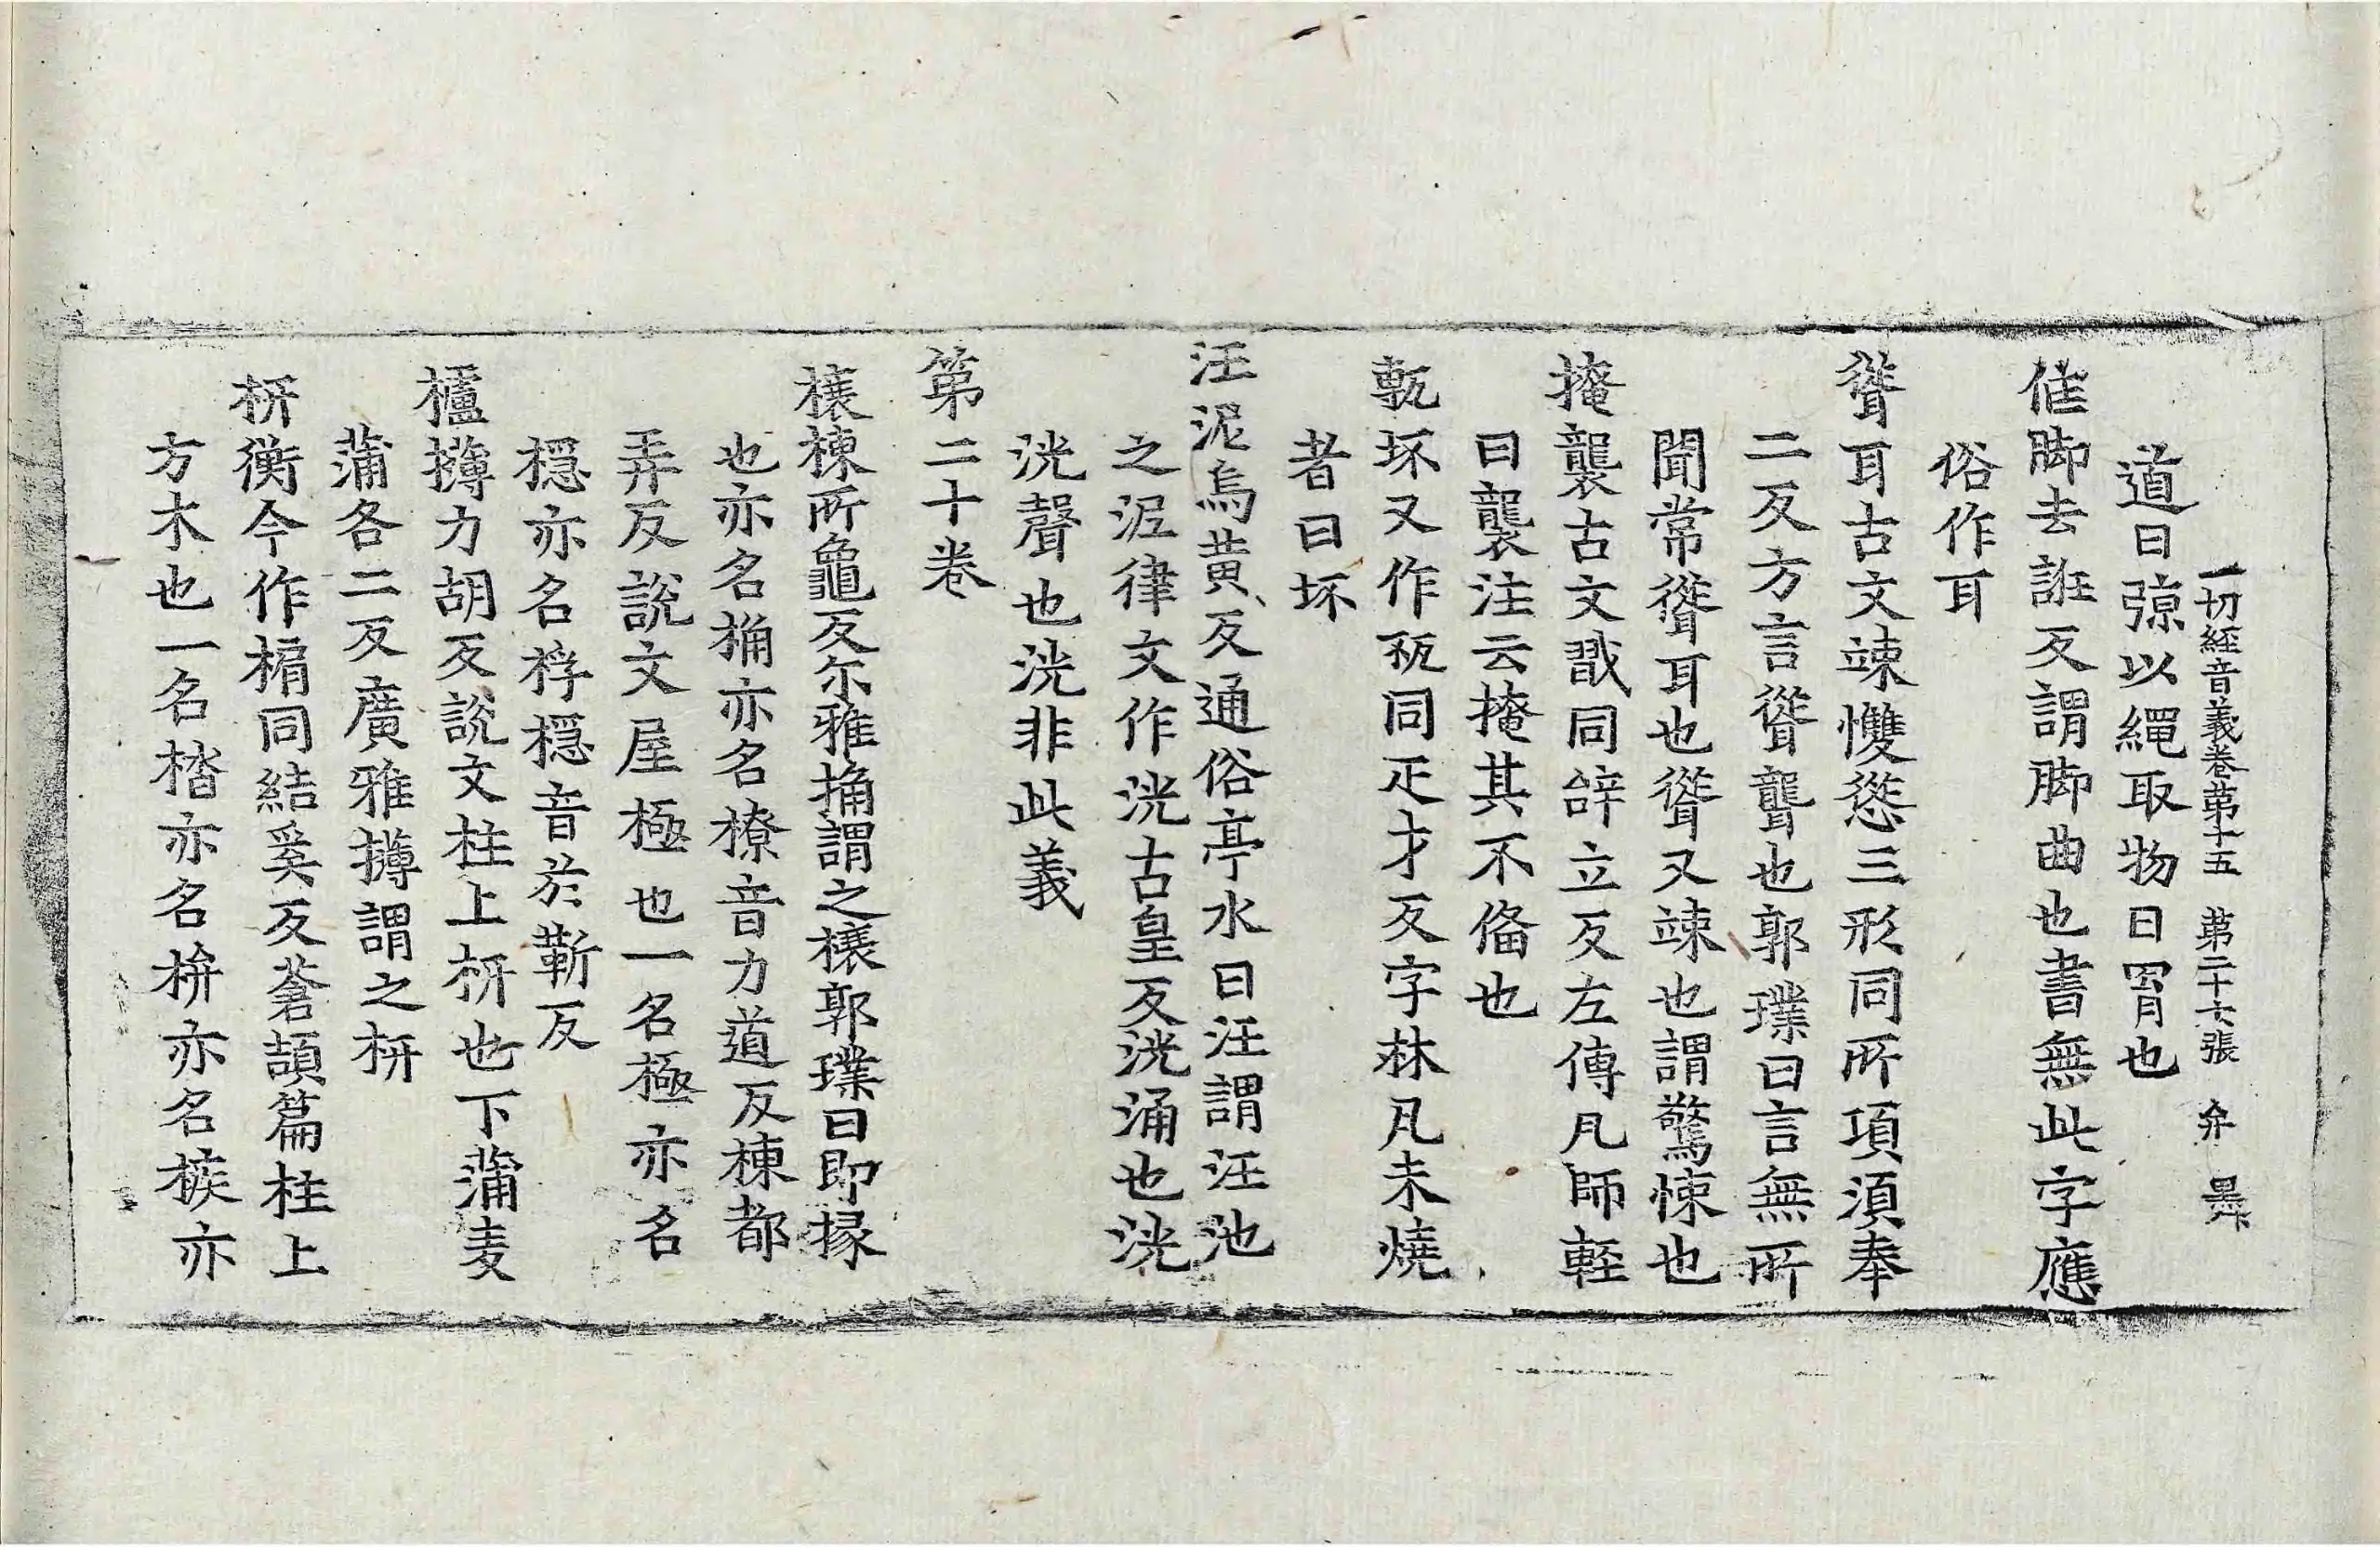 一切經音義卷第十五 第二十七張 弁
道曰弶以繩取物曰罥也
㑌脚去誑反謂脚曲也書無此字應
俗作耳
聳耳古文竦㩳慫三形同所項須奉
二反方言聳聾也郭璞曰言無所
聞常聳耳也聳又竦也謂驚悚也
掩襲古文戠同辝立反左傳凡師輕
曰襲注云掩其不俻也
甎坏又作㼚同疋才反字林凡未燒
者曰坏
汪泥烏黃反通俗亭水曰汪謂汪池
之泥律文作洸古皇反洸涌也洸
洸聲也洸非此義
第二十卷
榱棟所龜反尓雅桷謂之榱郭璞曰即椽
也亦名桷亦名橑音力道反棟都
弄反說文屋極也一名極亦名
檼亦名桴檼音於靳反
櫨欂力胡反說文柱上枅也下蒲麦
蒲各二反廣雅欂謂之枅
枅衡今作㮞同結奚反蒼頡篇柱上
方木也一名楷亦名栟亦名㯌亦